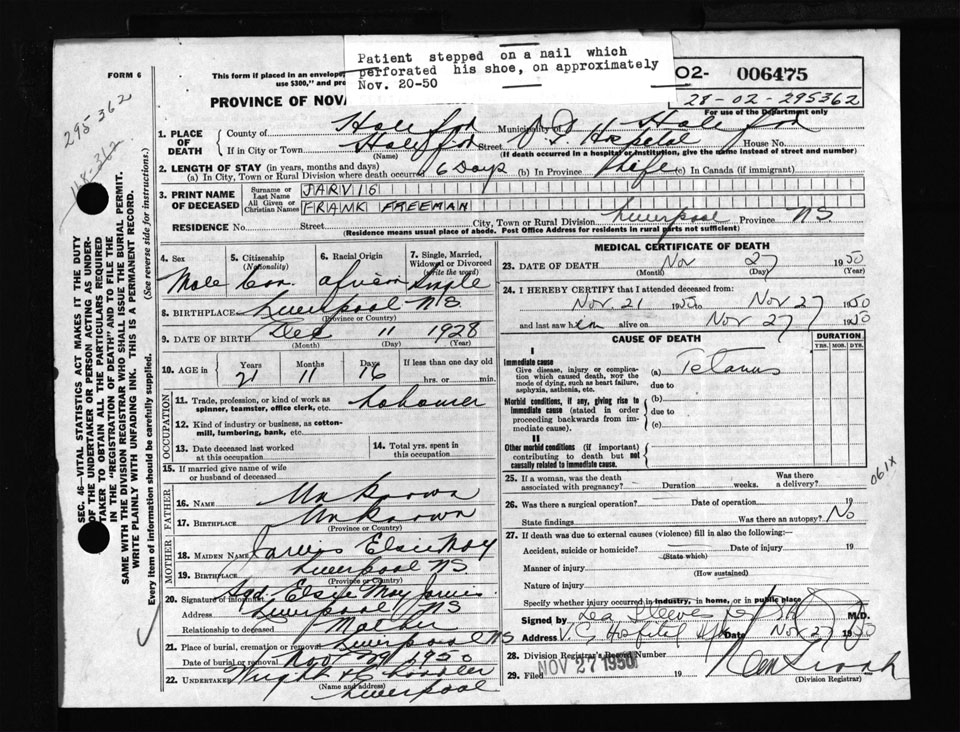 Patient stepped on a nail which
perforated his shoe, on approximately
Nov. 20-50
FORM 6
This form if placed in an envelope,
use $300," and pre
PROVINCE OF NOVA
O2- 006475
28-02-295362
For use of the Department only
295362
1. PLACE OF DEATH
County of Halifax Municipality of Halifax
If in City or Town Halifax Street V G Hospital House No.
(Name) (If death occurred in a hospital or institution, give the name instead of street and number)
2. LENGTH OF STAY (in years, months and days)
(a) In City, Town or Rural Division where death occurred 6 Days (b) In Province life (c) In Canada (if immigrant)
3. PRINT NAME OF DECEASED
Surname or Last Name JARVIS
All Given or Christian Names FRANK FREEMAN
RESIDENCE No. Street City, Town or Rural Division Liverpool Province NS
(Residence means usual place of abode. Post Office Address for residents in rural parts not sufficient)
4. Sex
5. Citizenship (Nationality)
6. Racial Origin
7. Single, Married, Widowed or Divorced (write the word)
Male Can. african Single
8. BIRTHPLACE Liverpool NS
(Province or Country)
9. DATE OF BIRTH Dec 11 1928
(Month) (Day) (Year)
10. AGE in Years Months Days If less than one day old
21 11 16 hrs. or min.
OCCUPATION
11. Trade, profession, or kind of work as spinner, teamster, office clerk, etc. Labourer
12. Kind of industry or business, as cotton-mill, lumbering, bank, etc.
13. Date deceased last worked at this occupation
14. Total yrs. spent in this occupation
15. If married give name of wife or husband of deceased
FATHER
16. NAME Unknown
17. BIRTHPLACE Unknown
(Province or Country)
MOTHER
18. MAIDEN NAME Jarvis Elsie May
19. BIRTHPLACE Liverpool NS
(Province or Country)
20. Signature of informant Sgd. Elsie May Jarvis
Address Liverpool NS
Relationship to deceased Mother
21. Place of burial, cremation or removal Liverpool NS
Date of burial or removal Nov 29 1950
22. UNDERTAKER Wright
(Name and address) Liverpool
MEDICAL CERTIFICATE OF DEATH
23. DATE OF DEATH Nov 27 1950
(Month) (Day) (Year)
24. I HEREBY CERTIFY that I attended deceased from:
Nov. 21 1950 to Nov 27 1950
and last saw him alive on Nov 27 1950
CAUSE OF DEATH
DURATION
YRS. MOS. DYS.
I
Immediate cause
Give disease, injury or complication which caused death, NOT the mode of dying, such as heart failure, asphyxia, asthenia, etc.
(a) Tetanus
due to
Morbid conditions, if any, giving rise to immediate cause (stated in order proceeding backwards from immediate cause).
(b)
due to
(c)
II
Other morbid conditions (if important) contributing to death but not causally related to immediate cause.
061X
25. If a woman, was the death associated with pregnancy? Duration weeks. Was there a delivery?
26. Was there a surgical operation? Date of operation 19
State findings Was there an autopsy? No
27. If death was due to external causes (violence) fill in also the following:—
Accident, suicide or homicide? Date of injury 19
(State which)
Manner of injury
(How sustained)
Nature of injury
Specify whether injury occurred in industry, in home, or in public place
Signed by M.D.
Address V. G Hospital Hfx Date Nov 27 1950
28. Division Registrar's Record Number
NOV 27 1950
29. Filed 19
(Division Registrar)
SEC. 46—VITAL STATISTICS ACT MAKES IT THE DUTY
OF THE UNDERTAKER OR PERSON ACTING AS UNDER-
TAKER TO OBTAIN ALL THE PARTICULARS REQUIRED
IN THE "REGISTRATION OF DEATH" AND TO FILE THE
SAME WITH THE DIVISION REGISTRAR WHO SHALL ISSUE THE BURIAL PERMIT.
WRITE PLAINLY WITH UNFADING INK. THIS IS A PERMANENT RECORD.
Every item of information should be carefully supplied. (See reverse side for instructions.)